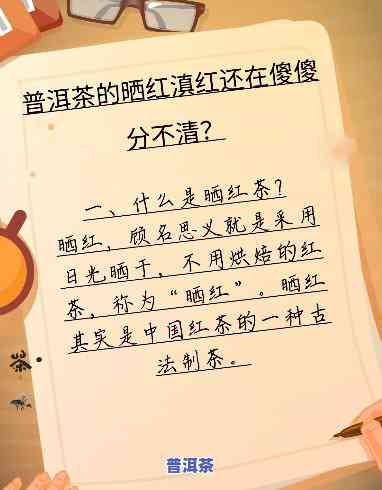 普洱茶的晒红滇红还在傻傻
分不清？
一、什么是晒红茶？
晒红，顾名思义就是采用
日光晒干，不用烘焙的红
茶，称为“晒红”。晒红
其实是中国红茶的一种古
法制茶。
茶
普洱茶